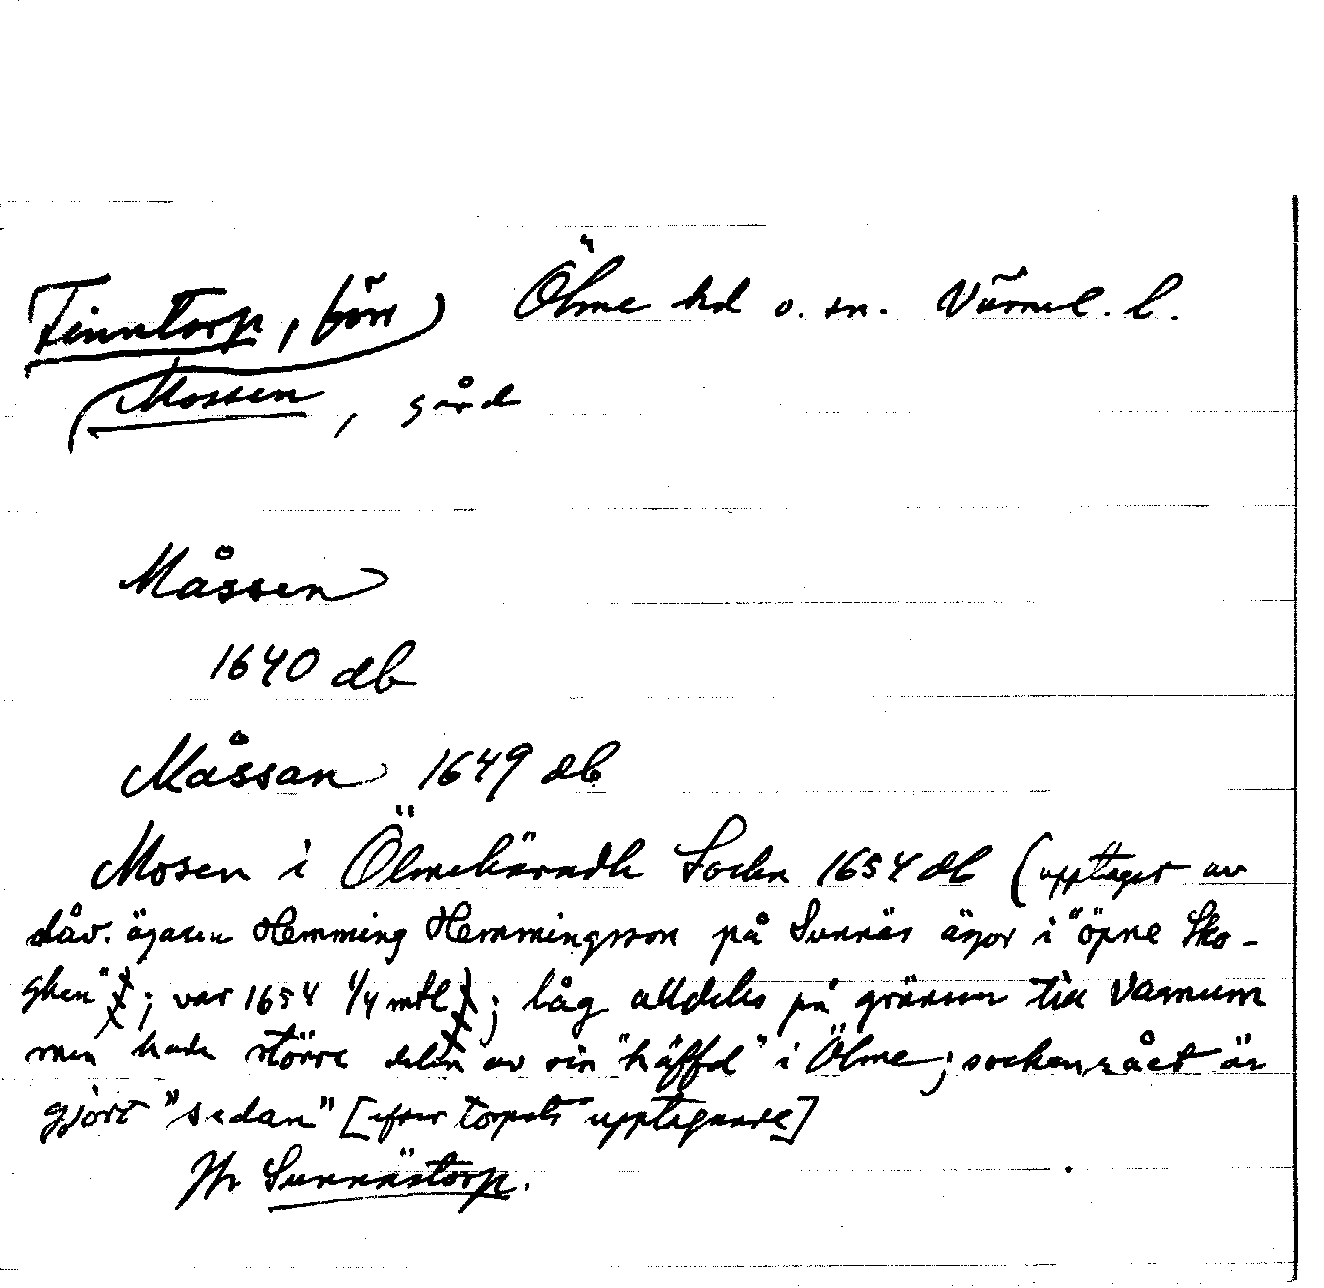 Finntorp, förr) Ölme hd o. sn. Värml. l.
(Mossen, gård
Måssen
1640 db
Måssan 1649 db
Mosen i Ölmehäradh Sochn 1654 db (upptaget av
dåv. ägaren Hemming Hemmingsson på Sunnäs ägor i "öpne Sko-
ghen"; var 1654 1/4 mtl); låg alldeles på gränsen till Varnum
men hade större delen av sin "häffd" i Ölme; sockenrået är
gjort "sedan" [efter torpets upptagande]
Jfr Sunnästorp.